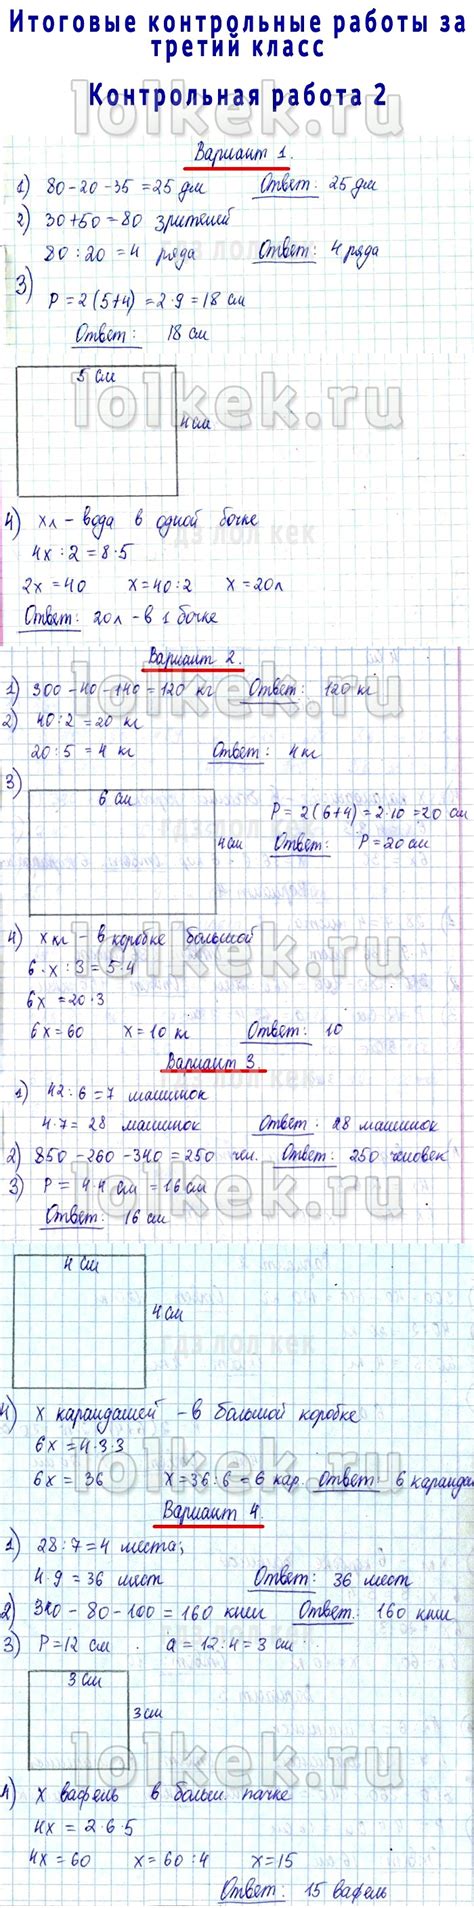 Итоговые контрольные работы за
третий класс
Контрольная работа 2
lolkek.ru
Вариант 1.
1) 80-20-35=25 дм Ответ: 25 дм
2) 30+50=80 зрителей
80:20=4 ряда Ответ: 4 ряда
3)
P=2(5+4)=2·9=18 см
Ответ: 18 см
5 см
lolkek.ru
4 см
4) x л - вода в одной бочке
гдз лол кек
4x:2=8·5
2x=40 x=40:2 x=20л
Ответ: 20л - в 1 бочке
Вариант 2.
lolkek.ru
1) 300-40-140=120 кг Ответ: 120 кг
2) 40:2=20 кг
20:5=4 кг Ответ: 4 кг
3)
6 см P=2(6+4)=2·10=20 см
гдз лол кек
4 см Ответ: P=20 см
4) x кг - в коробке большой
lolkek.ru
6·x:3=5·4
6x=20·3
6x=60 x=10 кг Ответ: 10
Вариант 3.
1) 42:6=7 машинок
4·7=28 машинок Ответ: 28 машинок
2) 850-260-340=250 чел. Ответ: 250 человек
3) P=4·4 см=16 см
lolkek.ru
Ответ: 16 см
4 см
4 см
гдз лол кек
4) x карандашей - в большой коробке
6x=4·3·3
lolkek.ru
6x=36 x=36:6=6 кар. Ответ: 6 каранда
Вариант 4.
1) 28:7=4 места;
4·9=36 мест Ответ: 36 мест
2) 340-80-100=160 книг Ответ: 160 книг
3) P=12 см a=12:4=3 см
3 см
3 см
lolkek.ru
4) x вафель в больш. пачке
4x=2·6·5
4x=60 x=60:4 x=15
Ответ: 15 вафель